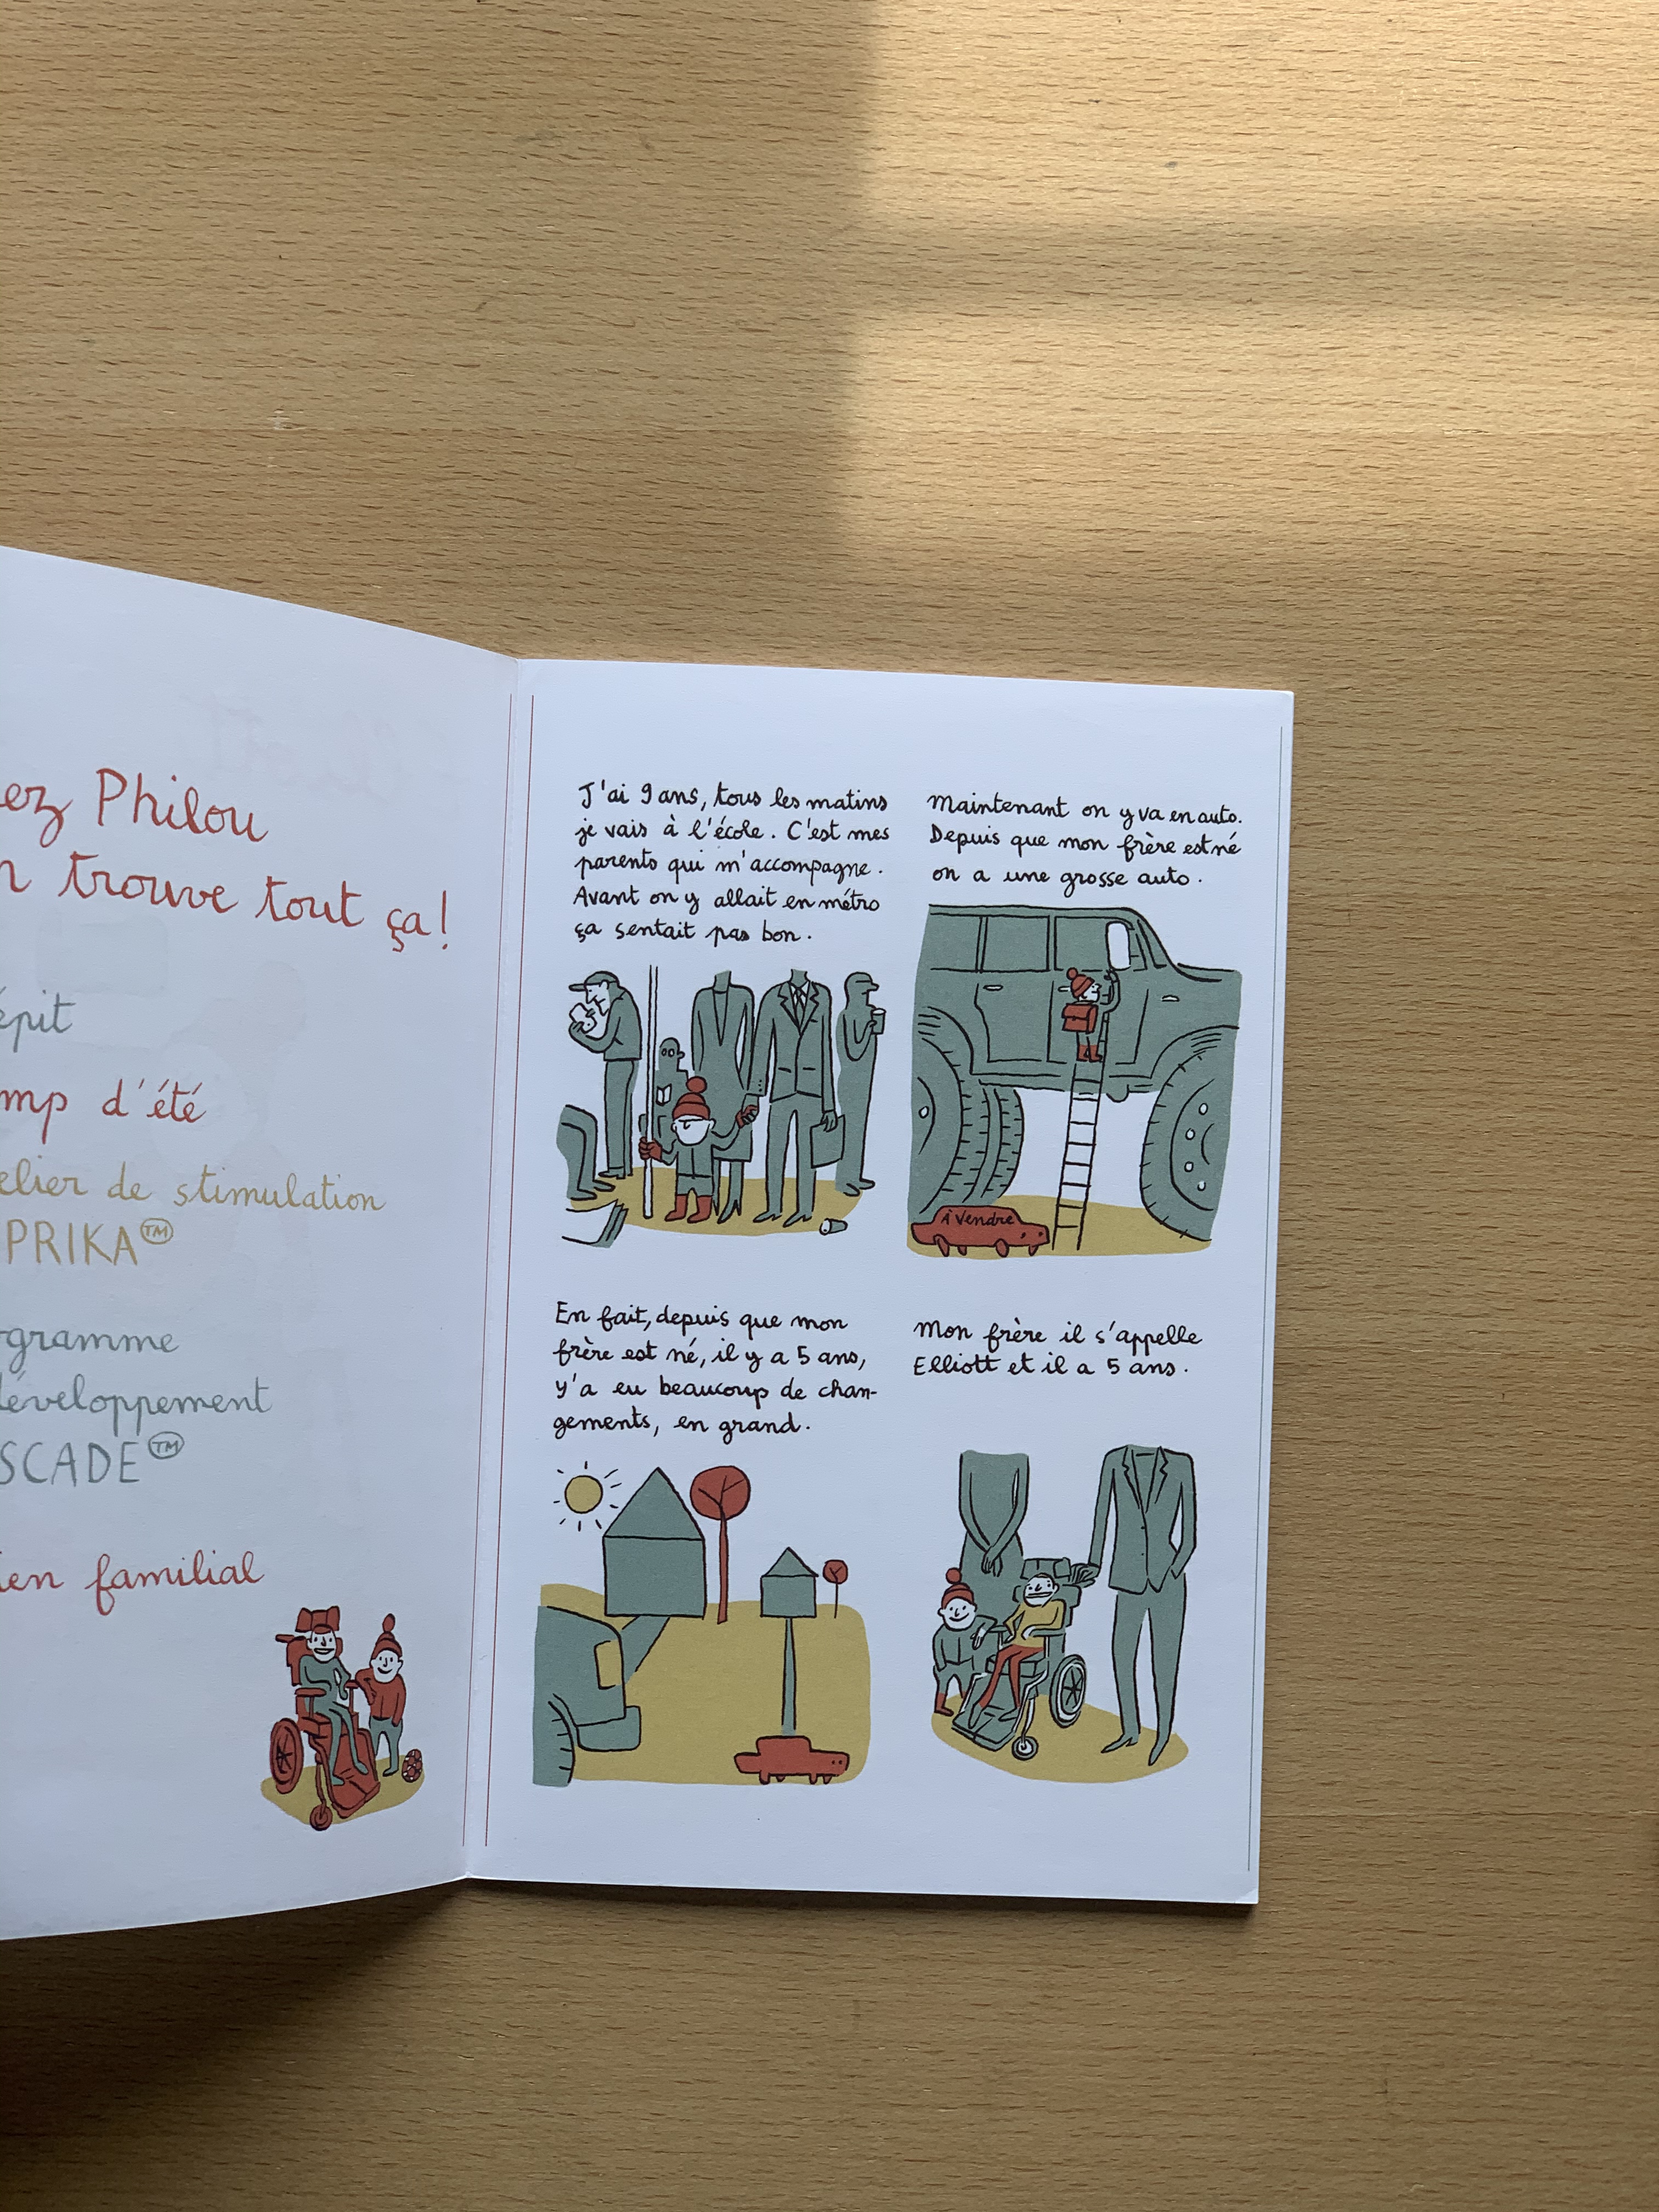 Philou
trouve tout ça!
d'été
de stimulation
familial
J'ai 9 ans, tous les matins
je vais à l'école. C'est mes
parents qui m'accompagne.
Avant on y allait en métro
ça sentait pas bon.
Maintenant on y va en auto.
Depuis que mon frère est né
on a une grosse auto.
À Vendre
En fait, depuis que mon
frère est né, il y a 5 ans,
y'a eu beaucoup de chan-
gements, en grand.
Mon frère il s'appelle
Elliott et il a 5 ans.